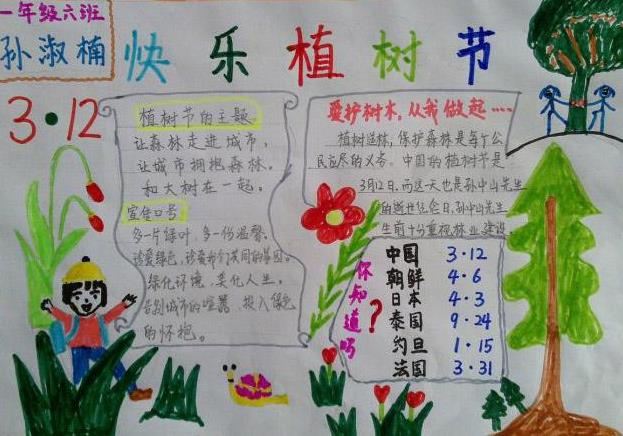 一年级六班
孙淑楠
快乐植树节
3·12
植树节的主题
让森林走进城市,
让城市拥抱森林。
和大树在一起。
宣传口号
多一片绿叶,多一份温馨。
珍爱绿色,珍爱我们共同的家园。
绿化环境,美化人生。
告别城市的喧嚣 投入绿色
的怀抱。
爱护树木,从我做起····
植树造林,保护森林是每个公
民应尽的义务。中国的植树节是
3月12日,而这一天也是孙中山先生
的逝世纪念日,孙中山先生
生前十分重视林业建设。
你知道吗?
中国 3·12
朝鲜 4·6
日本 4·3
泰国 9·24
约旦 1·15
法国 3·31